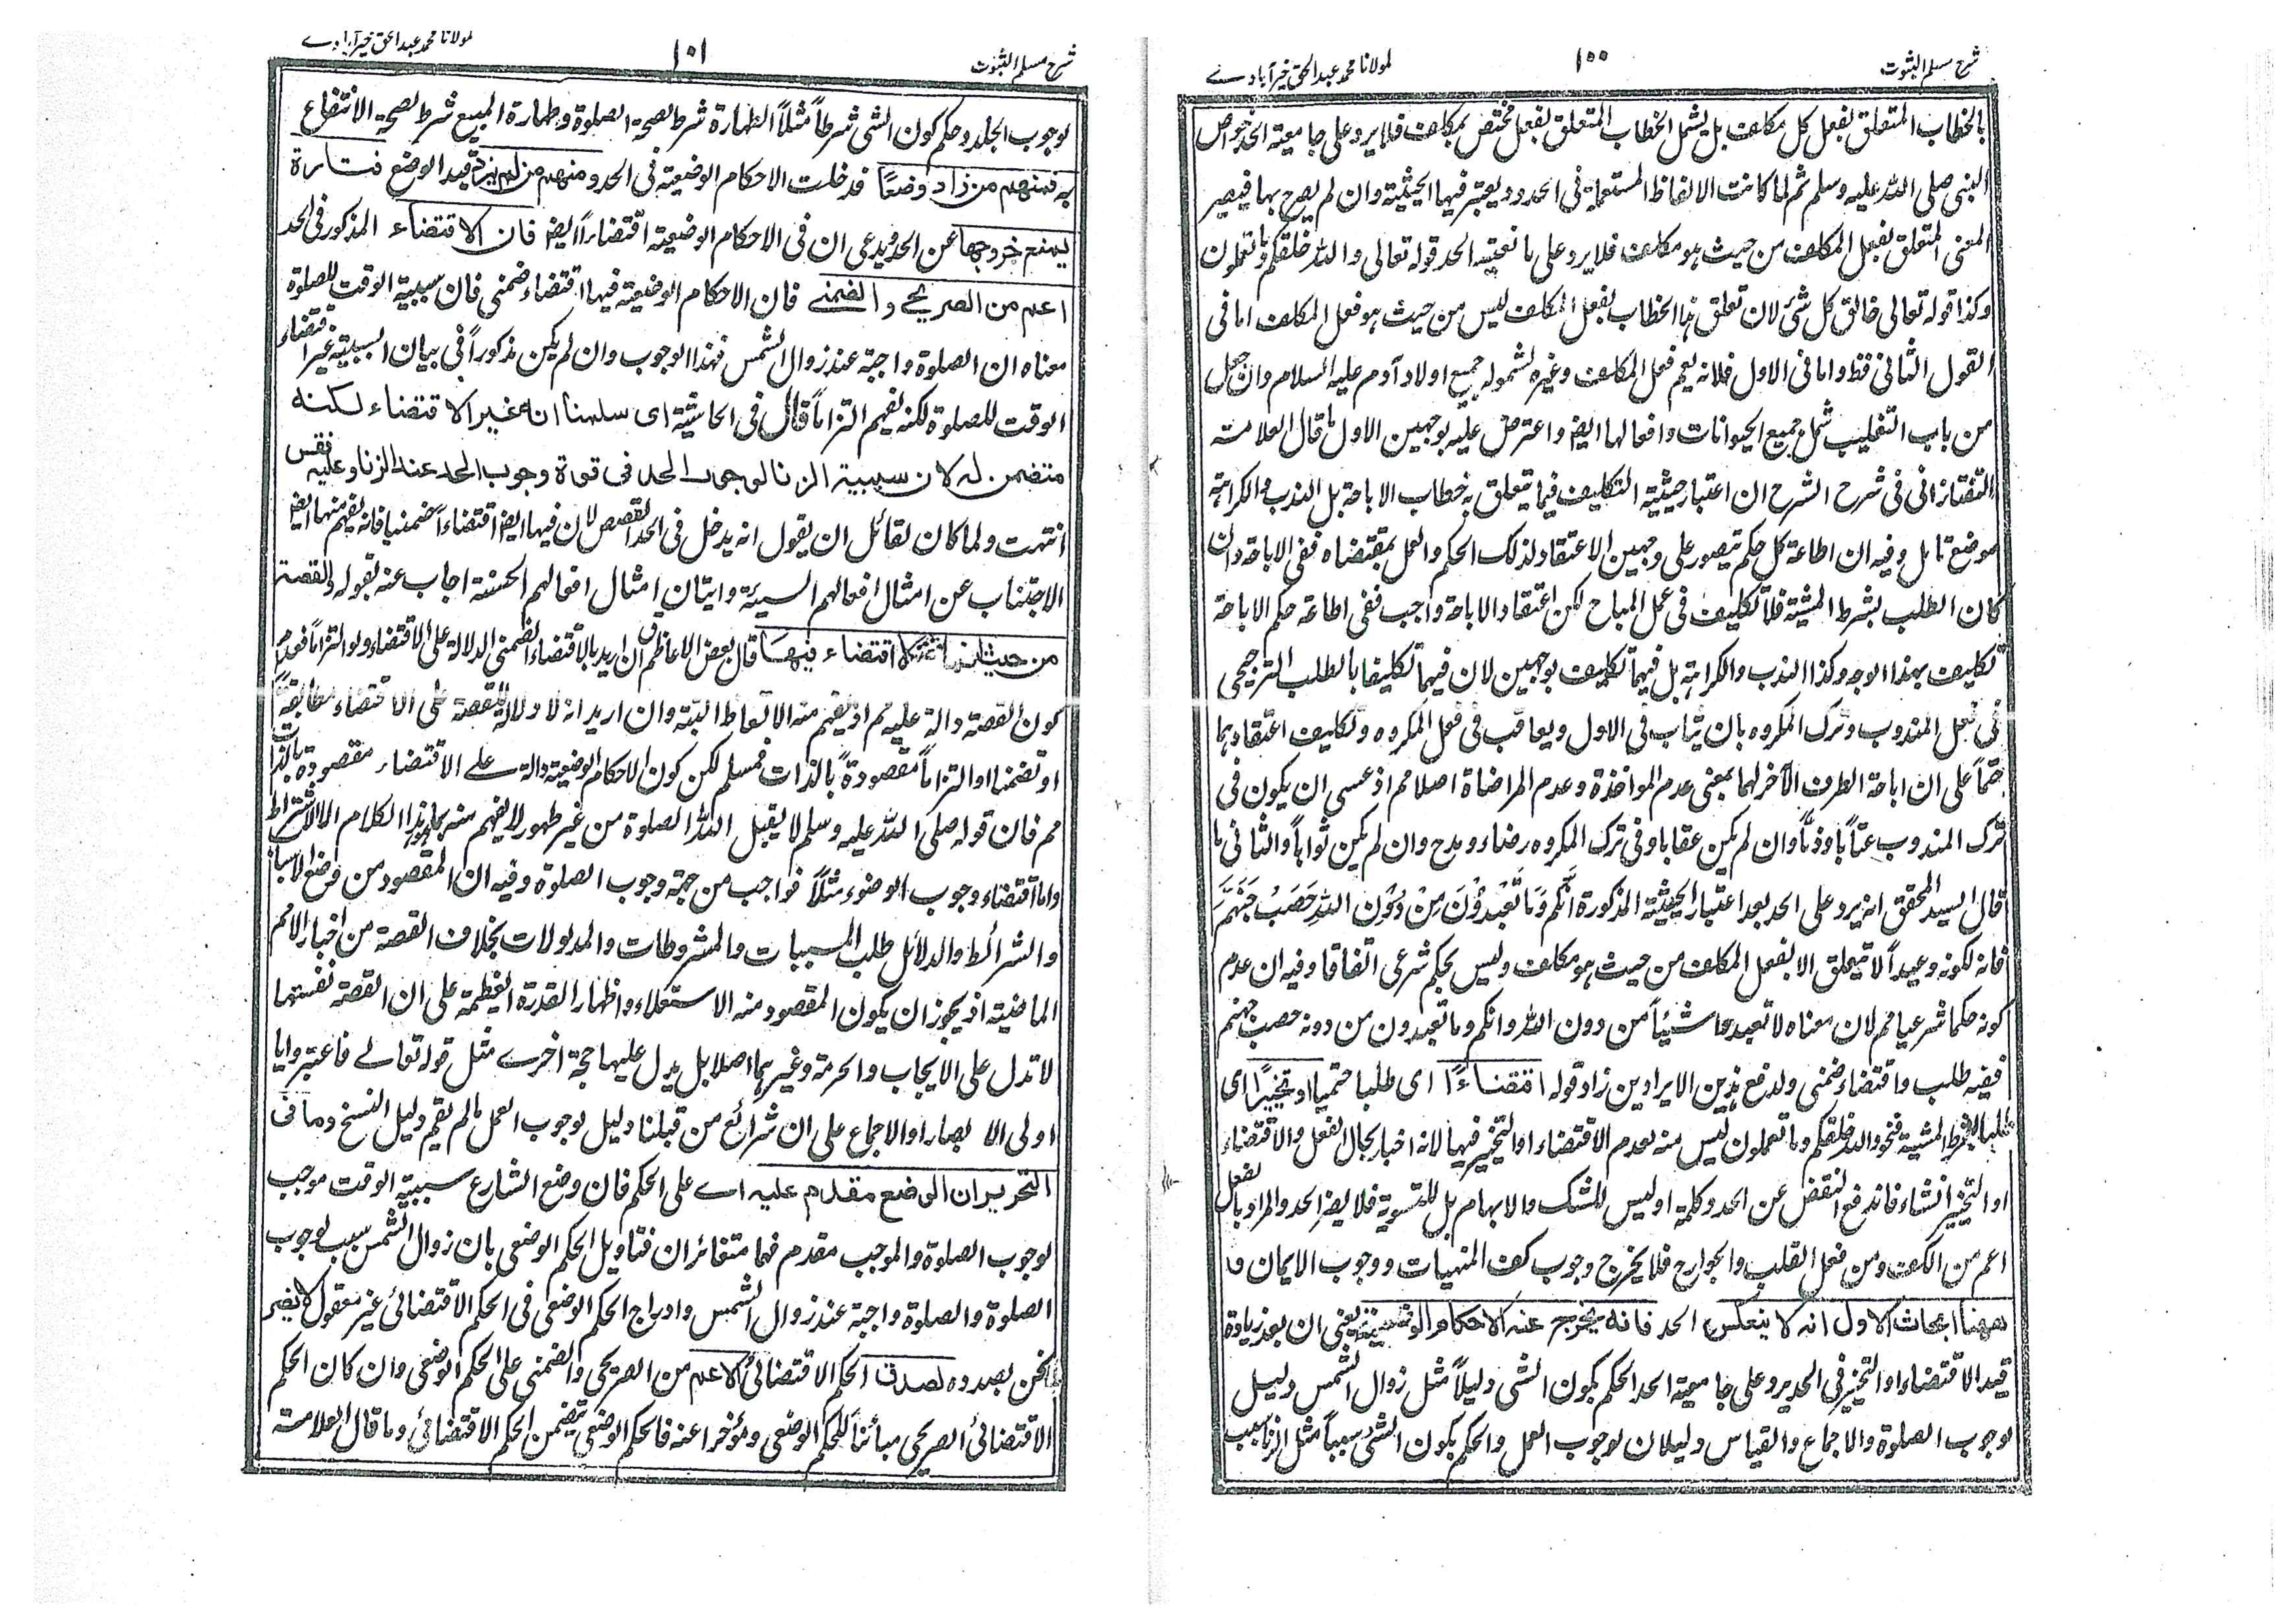 شرح مسلم الثبوت ١٠٠ لمولانا محمد عبد الحق خيرآبادے
بالخطاب المتعلق بفعل كل مكلف بل يشمل الخطاب المتعلق بفعل مختص بمكلف فلا يرد على جامعية الحد خواص
النبى صلى الله عليه وسلم ثم لما كانت الالفاظ المستعملة فى الحدود يعتبر فيها الحيثية وان لم يصرح بها فيصير
المعنى المتعلق بفعل المكلف من حيث هو مكلف فلا يرد على مانعية الحد قوله تعالى والله خلقكم وما تعملون
وكذا قوله تعالى خالق كل شئ لان تعلق هذا الخطاب بفعل المكلف ليس من حيث هو فعل المكلف اما فى
القول الثانى فقط واما فى الاول فلانه يعم فعل المكلف وغيره لشموله جميع اولاد آدم عليه السلام وان جعل
من باب التغليب شمل جميع الحيوانات وافعالها ايضا واعترض عليه بوجهين الاول ما قال العلامة
التفتازانى فى شرح الشرح ان اعتبار حيثية التكليف فيما يتعلق به خطاب الاباحة بل الندب والكراهة
موضع تامل وفيه ان اطاعة كل حكم تتصور على وجهين الاعتقاد لذلك الحكم والعمل بمقتضاه ففى الاباحة وان
كان الطلب بشرط المشية فلا تكليف فى عمل المباح لكن اعتقاد الاباحة واجب ففى اطاعة حكم الاباحة
تكليف بهذا الوجه وكذا الندب والكراهة بل فيهما تكليف بوجهين لان فيهما تكليفا بالطلب الترجيحى
فى فعل المندوب وترك المكروه بان يثاب فى الاول ويعاقب فى فعل المكروه وتكليف اعتقادهما
حتماً على ان اباحة الطرف الآخر لهما بمعنى عدم المواخذة وعدم المراضاة اصلا مم اذ عسى ان يكون فى
ترك المندوب عتاباً وذماً وان لم يكن عقابا وفى ترك المكروه رضاء ومدح وان لم يكن ثواباً والثانى ما
قال السيد المحقق انه يرد على الحد بعد اعتبار الحيثية المذكورة اِنَّكُم وَمَا تَعْبُدُوْنَ مِنْ دُوْنِ اللهِ حَصَبُ جَهَنَّمَ
فانه لكونه وعيداً لا يتعلق الا بفعل المكلف من حيث هو مكلف وليس بحكم شرعى اتفاقا وفيه ان عدم
كونه حكما شرعيا مم لان معناه لا تعبدوا شيئاً من دون الله وانكم وما تعبدون من دونه حصب جهنم
ففيه طلب واقتضاء ضمنى ولدفع هذين الايرادين زاد قوله اقتضاءً ا اى طلبا حتميا او تخييرًا اى
طلبا بشرط المشية فنحو والله خلقكم وما تعملون ليس منه لعدم الاقتضاء او التخيير فيها لانه اخبار بحال الفعل والاقتضاء
او التخيير انشاء فاندفع النقض عن الحد وكلمة او ليس للشك والابهام بل للتسوية فلا يضر الحد والمراد بالفعل
اعم من الكف ومن فعل القلب والجوارح فلا يخرج وجوب كف المنهيات ووجوب الايمان و
ههنا ابحاث الاول انه لا ينعكس الحد فانه يخرج عنه الاحكام الوضعية يعنى ان بعد زيادة
قيد الاقتضاء او التخيير فى الحد يرد على جامعية الحد الحكم بكون الشى دليلاً مثل زوال الشمس دليل
لوجوب الصلوة والاجماع والقياس دليلان لوجوب العمل والحكم بكون الشئ سبباً مثل الزنا سبب
شرح مسلم الثبوت ١٠١ لمولانا محمد عبد الحق خيرآبادے
لوجوب الجلد وحكم كون الشى شرطاً مثلاً الطهارة شرط لصحة الصلوة وطهارة المبيع شرط لصحة الانتفاع
به فمنهم من زاد وضعًا فدخلت الاحكام الوضعية فى الحد ومنهم من لم يزد قيد الوضع فتارة
يمنع خروجها عن الحد ويدعى ان فى الاحكام الوضعية اقتضاءاً ايضا فان الاقتضاء المذكور فى الحد
اعم من الصريحے والضمنے فان الاحكام الوضعية فيها اقتضاء ضمنى فان سببية الوقت للصلوة
معناه ان الصلوة واجبة عند زوال الشمس فهذا الوجوب وان لم يكن مذكوراً فى بيان السببية غير اقتضاء
الوقت للصلوة لكنه يفهم التزاماً قال فى الحاشية اى سلمنا انه غير الاقتضاء لكنه
متضمن له لان سببية الزنا لوجوب الحد فى قوة وجوب الحد عند الزنا وعليه فقس
انتهت ولما كان لقائل ان يقول انه يدخل فى الحد القصص لان فيها ايضا اقتضاءاً ضمنيا فانه يفهم منها ايضا
الاجتناب عن امثال افعالهم السيئة واتيان امثال افعالهم الحسنة اجاب عنه بقوله والقصة
من حيث انها قصة لا اقتضاء فيها قال بعض الاعاظم ان اريد بالاقتضاء الضمنى الدلالة على الاقتضاء ولو التزاماً فعدم
كون القصة دالة عليه مم اذ يفهم منه الاتعاظ البتة وان اريد انه لا دلالة للقصة على الاقتضاء مطابقةً
او تضمنا او التزاماً مقصودةً بالذات فمسلم لكن كون الاحكام الوضعية دالة علے الاقتضاء مقصودة بالذات
مم فان قوله صلى الله عليه وسلم لا يقبل الله الصلوة من غير طهور لا يفهم منه بهذا الكلام الا الاشتراط
واما اقتضاء وجوب الوضوء مثلاً فواجب من جهة وجوب الصلوة وفيه ان المقصود من وضع الاسباب
والشرائط والدلائل طلب المسببات والمشروطات والمدلولات بخلاف القصة من اخبار الامم
الماضية اذ يجوز ان يكون المقصود منه الاستعلاء واظهار القدرة العظمة على ان القصة نفسها
لا تدل على الايجاب والحرمة وغيرهما اصلا بل يدل عليها حجة اخرے مثل قوله تعالے فاعتبروا يا
اولى الابصار او الاجماع على ان شرائع من قبلنا دليل لوجوب العمل ما لم يقم دليل النسخ وما فى
التحرير ان الوضع مقدم عليه اے على الحكم فان وضع الشارع سببية الوقت موجب
لوجوب الصلوة والموجب مقدم فهما متغائران فتاويل الحكم الوضعى بان زوال الشمس سبب لوجوب
الصلوة والصلوة واجبة عند زوال الشمس وادراج الحكم الوضعى فى الحكم الاقتضائى غير معقول لا يضر
نحن بصدده لصدق الحكم الاقتضائى الاعم من الصريحى والضمنى على الحكم الوضعى وان كان الحكم
الاقتضائى الصريحى مبائناً للحكم الوضعى ومؤخرا عنه فالحكم الوضعى يتضمن الحكم الاقتضائى وما قال العلامة